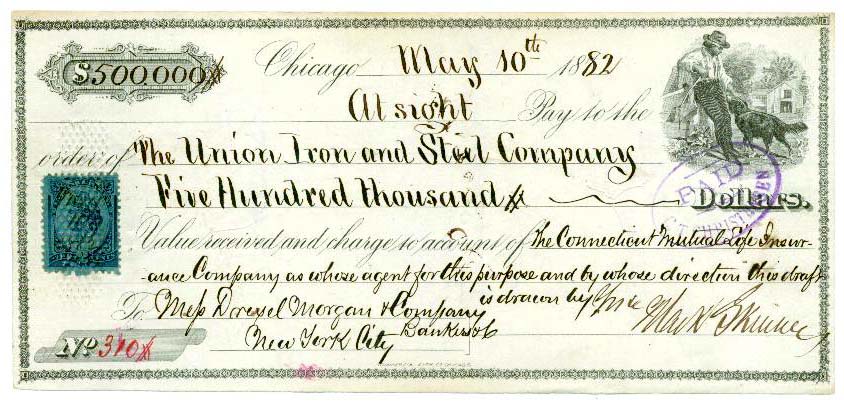 $500.000
Chicago May 10th 1882
At sight Pay to the
order of The Union Iron and Steel Company
Five Hundred thousand Dollars.
Value received and charge to account of The Connecticut Mutual Life Insur-
ance Company as whose agent for this purpose and by whose direction this draft
is drawn by me
To Mess Drexel Morgan & Company
Bankers of
New York City
Mark Skinner
No. 310
PAID